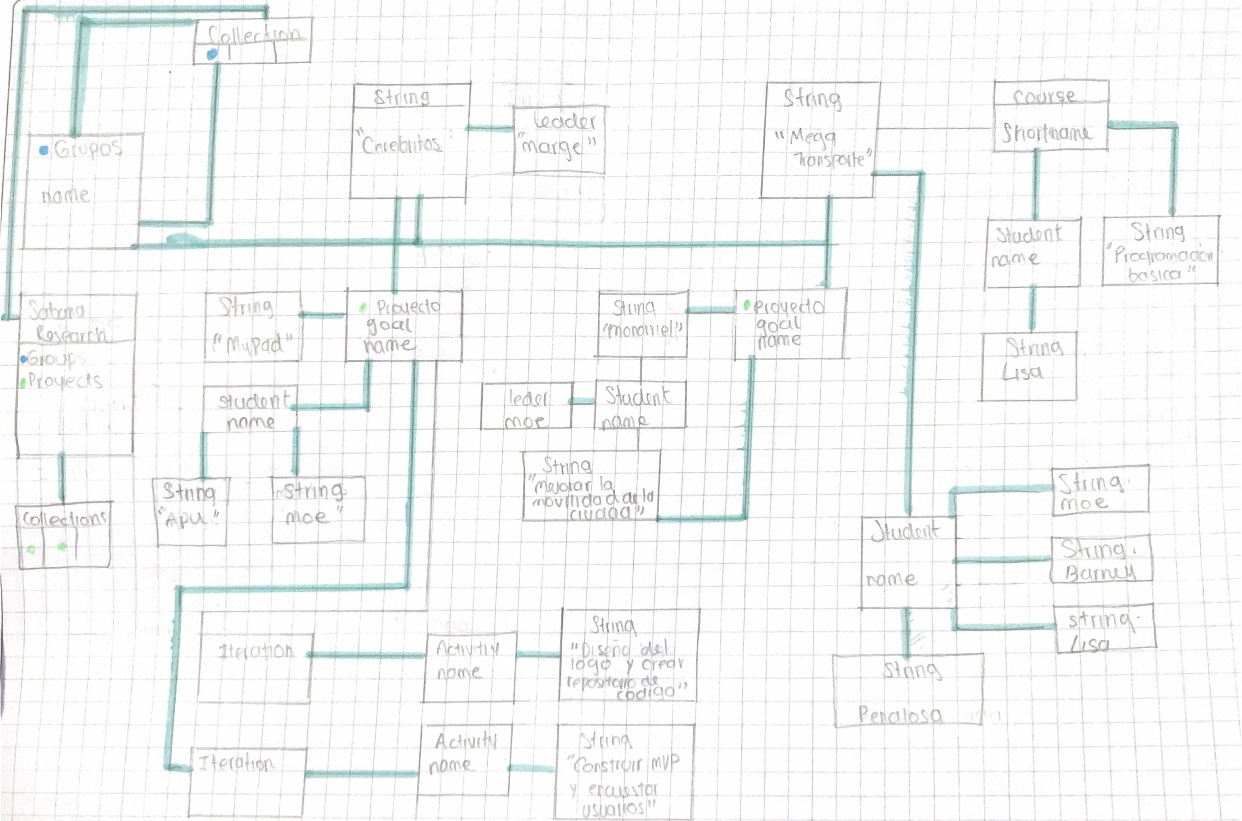 Collection
String
"Cerebritos
leader
"marge"
String
"Mega
Transporte"
course
Shortname
Grupos
name
Student
name
String
"Programación
basica"
Sabana
Research
Group
Proyects
String
"MyPad"
Proyecto
goal
name
String
"monorriel"
Proyecto
goal
name
String
Lisa
student
name
leder
moe
Student
name
String
"APU"
String
moe"
String
"Mejorar la
movilidad de la
ciudad"
Collections
Student
name
String.
moe
String.
Barney
string.
Lisa
String
Penalosa
Iteration
Activitiy
name
String
"Diseño del
logo y crear
repositorio de
codigo"
Iteration
Activity
name
String
"Construir MVP
y encuestar
usuarios"